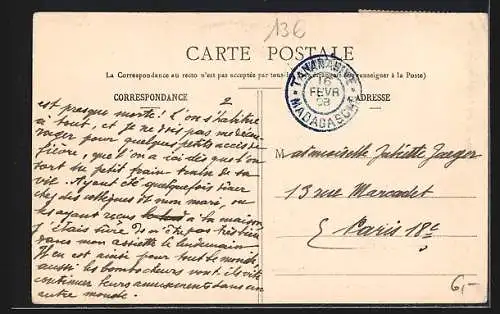 136
CARTE POSTALE
(La Correspondance au recto n'est pas acceptée par tous les à la Poste)
TANANARIVE
16
FEVR
08
MADAGASCAR
CORRESPONDANCE
ADRESSE
2
est presque morte! L'on s'habitue
à tout, et je ne dois pas me décou-
rager pour quelques petits accès de
fièvre, que l'on a ici dès que l'on
sort du petit train train de sa
vie. Ayant été quelquefois dîner
chez des collègues de mon mari, ou
les ayant reçus à la maison
j'étais sûre de n'être pas très bien
dans mon assiette le lendemain.
Il en est ainsi pour tout le monde,
aussi les bambocheurs vont ils vite
continuer leurs amusements dans un
autre monde.
Mademoiselle Juliette Jaeger
13 rue Marcadet
Paris 18e
6,-